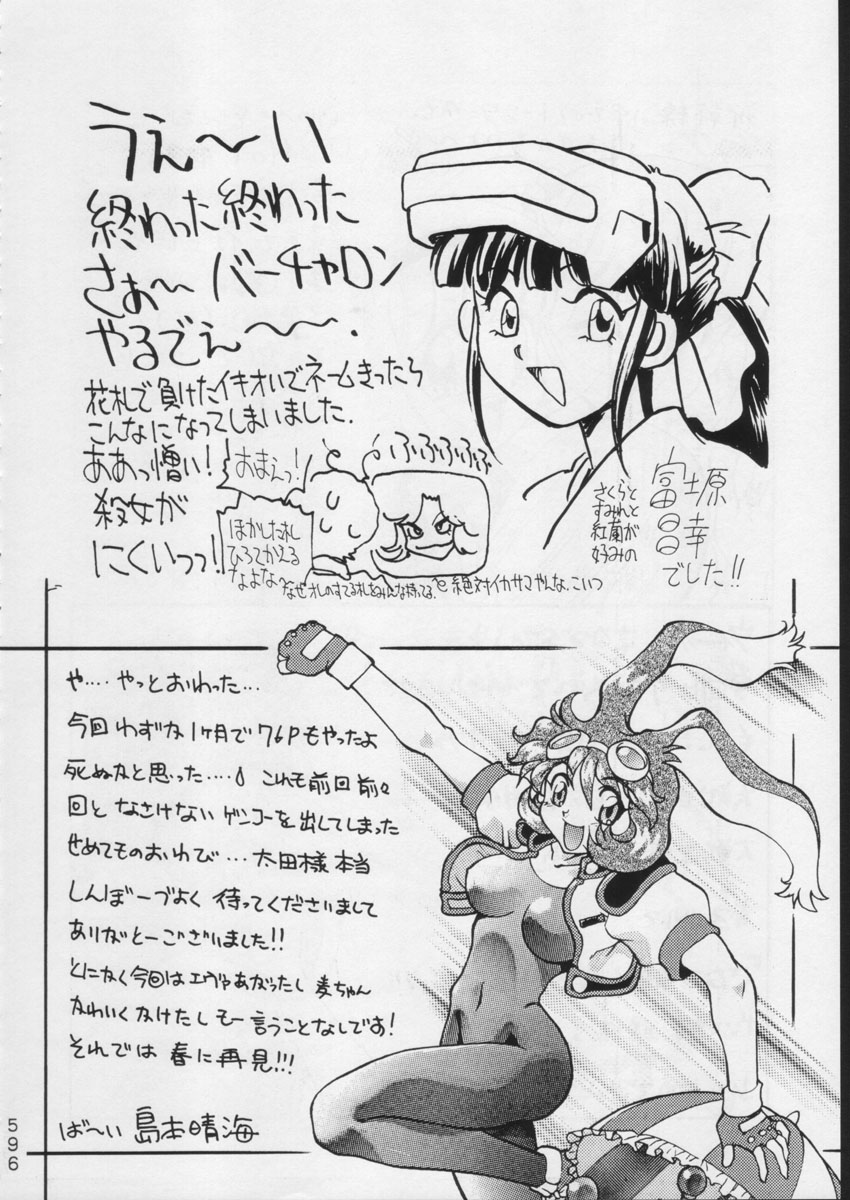 うえ〜い
終わった終わった
さぁ〜バーチャロン
やるでぇ〜〜.
花札で負けたイキオイでネームきったら
こんなになってしまいました.
ああっ憎い!
殺女が
にくいっっ!
おまえっ!
ほかした札
ひろてかえる
なよな〜
ふふふふふ
なぜオレのすてる札をみんな持ってる。
絶対イカサマやんな、こいつ
さくらと
すみれと
紅蘭が
好みの
富原
昌幸
でした!!
や‥‥やっとおわった…
今回わずか1ヶ月で76Pもやったよ
死ぬかと思った‥‥ これも前回前々
回と なさけないゲンコーを出してしまった
せめてものおわび… 太田様本当
しんぼーづよく 待ってくださいまして
ありがとーございました!!
とにかく今回はエヴァあがったし麦ちゃん
かわいくかけたし もー言うことなしです!
それでは 春に再見!!!
ば〜い 島本晴海
596